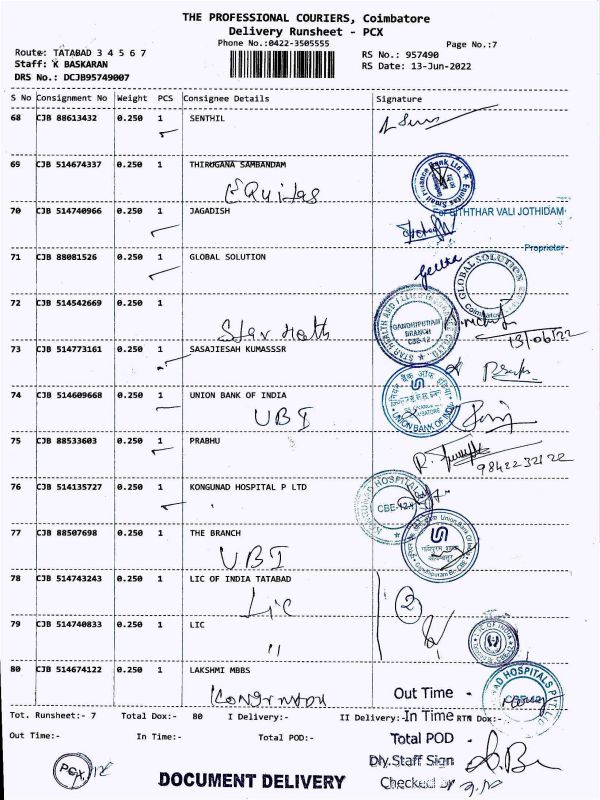 THE PROFESSIONAL COURIERS, Coimbatore
Delivery Runsheet - PCX
Phone No.:0422-3505555
Page No.:7
Route: TATABAD 3 4 5 6 7
RS No.: 957490
Staff: K BASKARAN
RS Date: 13-Jun-2022
DRS No.: DCJB95749007
S No Consignment No Weight PCS Consignee Details Signature
68 CJB 88613432 0.250 1 SENTHIL
69 CJB 514674337 0.250 1 THIRUGANA SAMBANDAM
EQUITAS
70 CJB 514740966 0.250 1 JAGADISH
SITHTHAR VALI JOTHIDAM
Proprietor
71 CJB 88081526 0.250 1 GLOBAL SOLUTION
Geetha
GLOBAL SOLUTION
Coimbatore
72 CJB 514542669 0.250 1
Star Health
GANDHIPURAM BRANCH CBE-12
13/06/22
73 CJB 514773161 0.250 1 SASAJIESAH KUMASSSR
74 CJB 514609668 0.250 1 UNION BANK OF INDIA
UBI
UNION BANK OF INDIA
75 CJB 88533603 0.250 1 PRABHU
9842232122
76 CJB 514135727 0.250 1 KONGUNAD HOSPITAL P LTD
HOSPITALS
CBE-12
77 CJB 88507698 0.250 1 THE BRANCH
UBI
78 CJB 514743243 0.250 1 LIC OF INDIA TATABAD
LIC
2
79 CJB 514740833 0.250 1 LIC
"
80 CJB 514674122 0.250 1 LAKSHMI MBBS
HOSPITALS
Out Time -
Tot. Runsheet:- 7 Total Dox:- 80 I Delivery:- II Delivery:- In Time - RTN Dox:-
Out Time:- In Time:- Total POD:- Total POD -
Dly.Staff Sign
PCX
DOCUMENT DELIVERY
Checked by